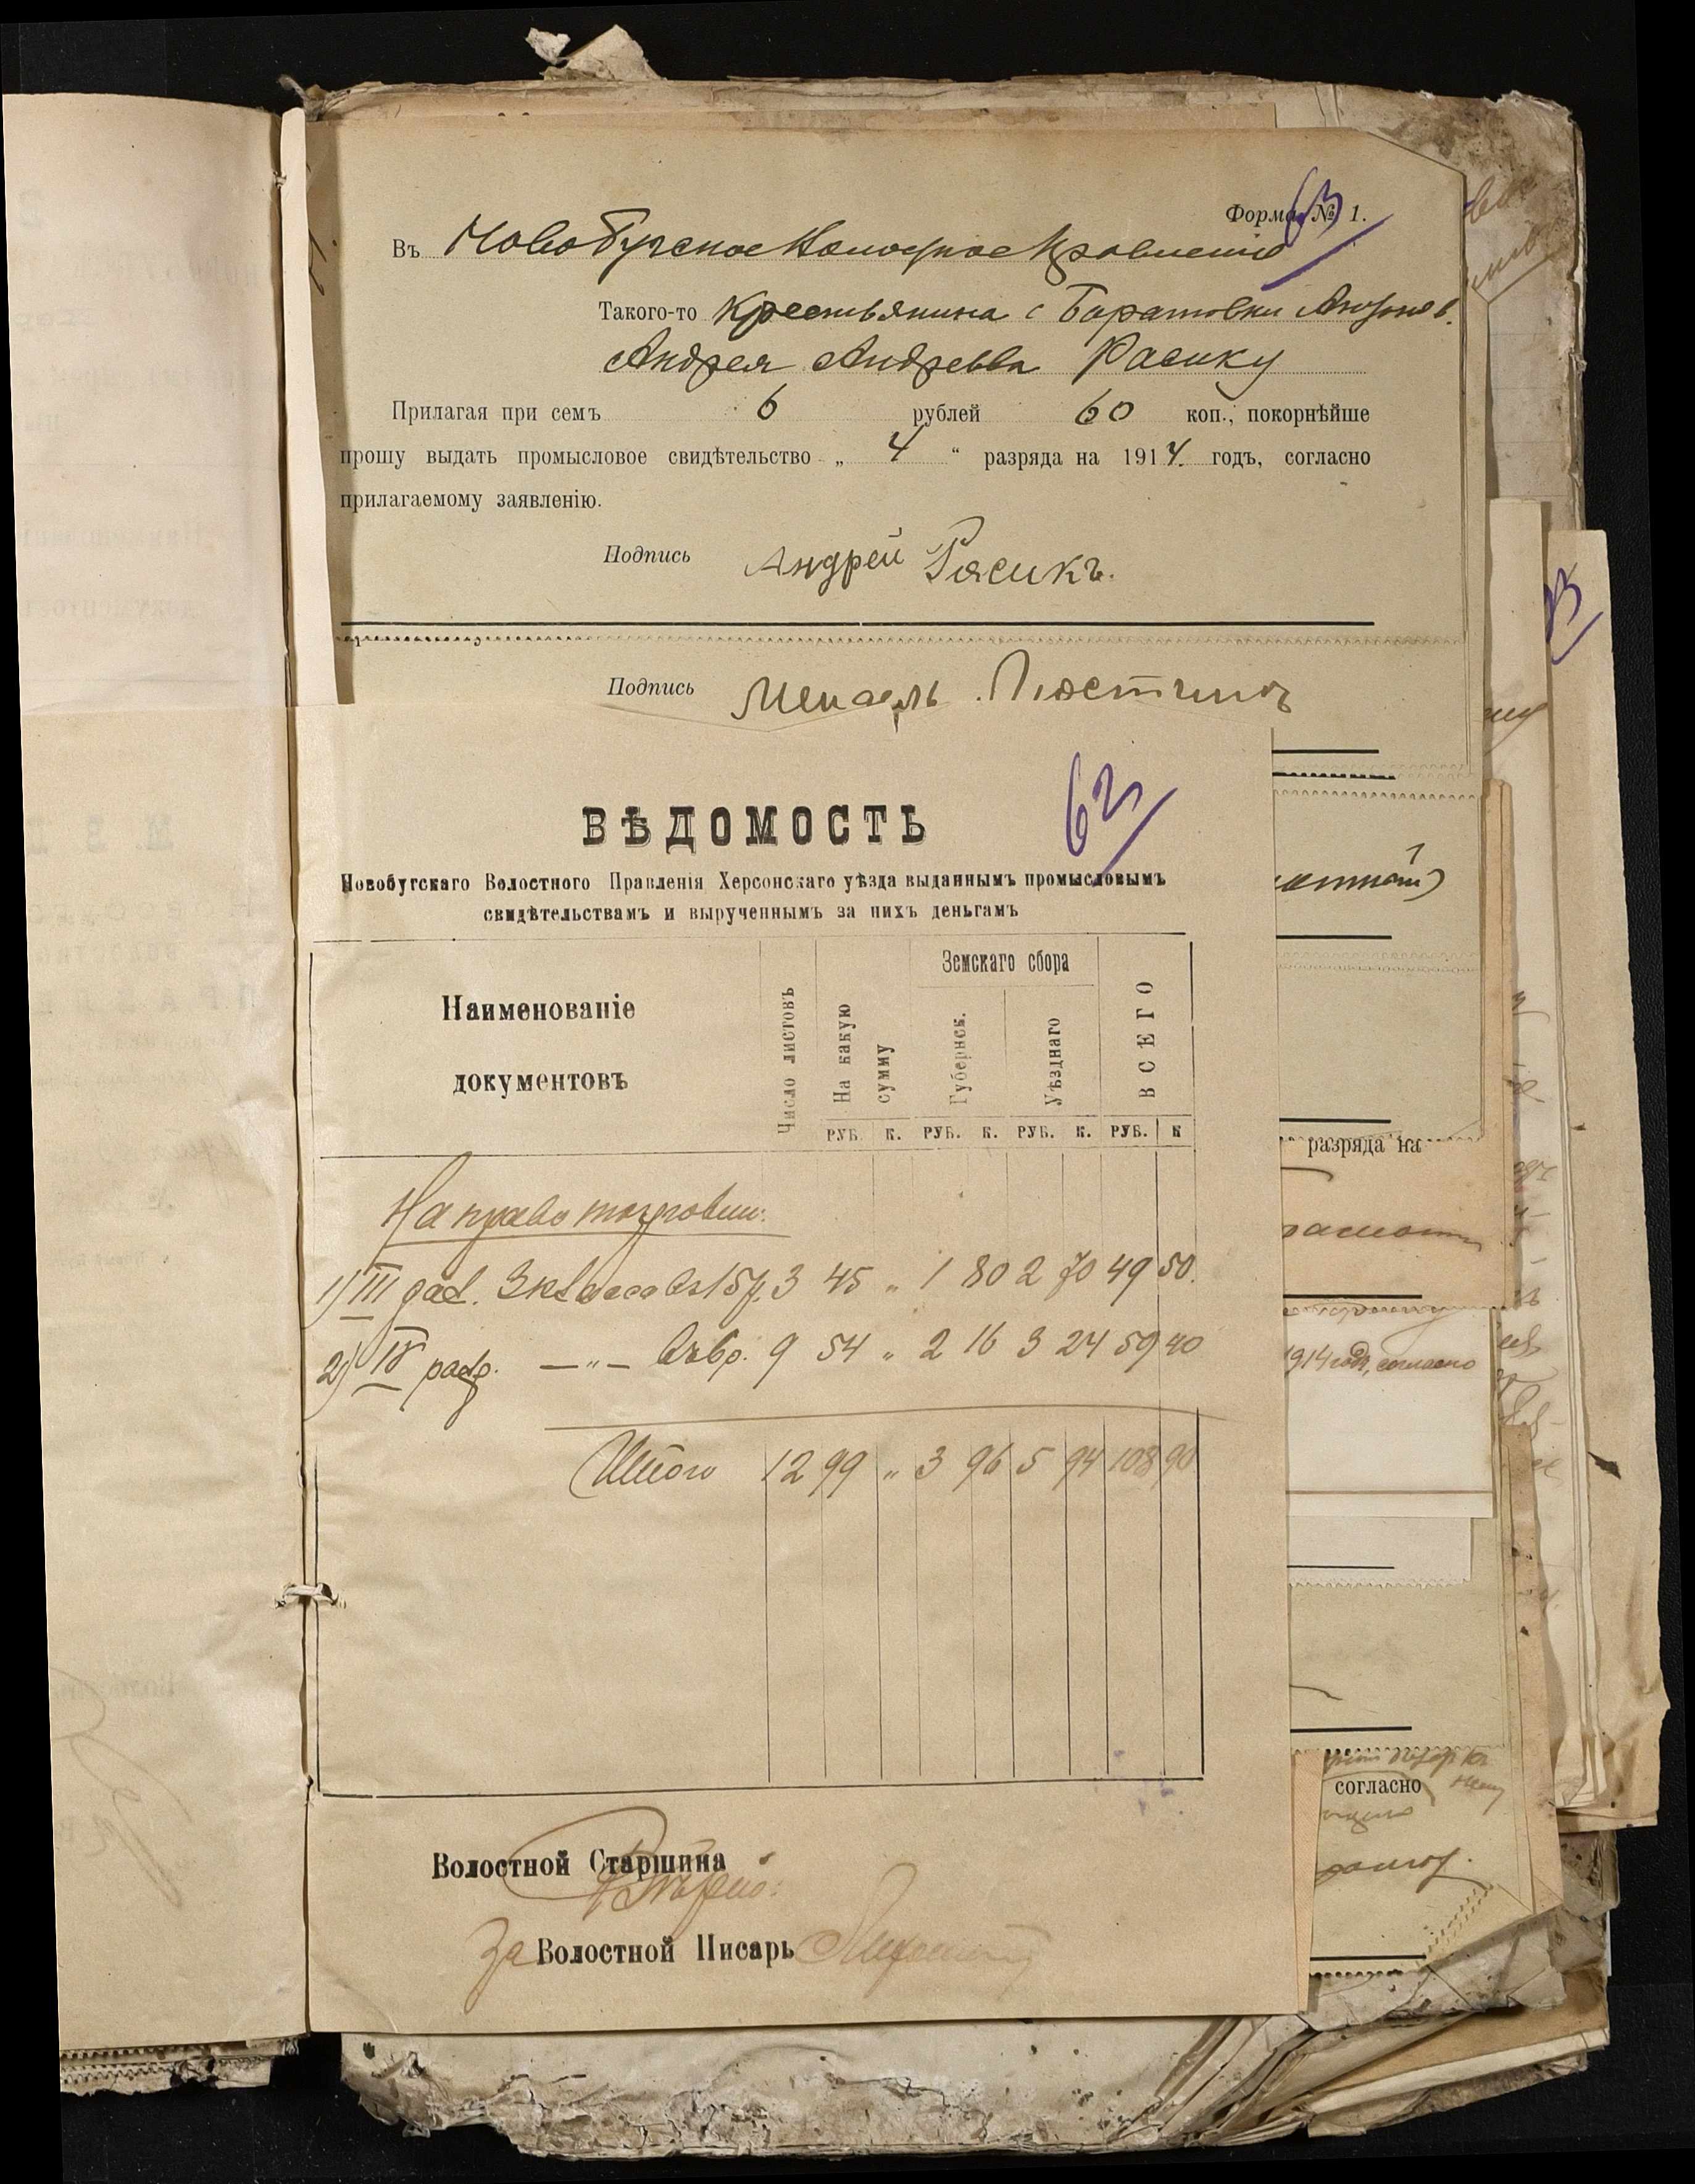 Форма № 1.
63
Въ Новобугское Волостное Правленіе
Такого-то Крестьянина с Баратовки
Андрея Андреева Расику
Прилагая при семъ 6 рублей 60 коп., покорнѣйше
прошу выдать промысловое свидѣтельство „ 4 “ разряда на 1914. годъ, согласно
прилагаемому заявленію.
Подпись Андрей Расикъ.
Подпись
62
ВѢДОМОСТЬ
Новобугскаго Волостного Правленія Херсонскаго уѣзда выданнымъ промысловымъ
свидѣтельствамъ и вырученнымъ за нихъ деньгамъ
Наименованіе документовъ
Число листовъ
На какую сумму
Земскаго сбора
Губернск.
Уѣзднаго
ВСЕГО
РУБ. К. РУБ. К. РУБ. К. РУБ. К
На право торговли:
1) III раз. 3 класса въ 15 р. 3 45 „ 1 80 2 70 49 50.
2) IV разр. —„— въ 6 р. 9 54 „ 2 16 3 24 59 40
Итого 12 99 „ 3 96 5 94 108 90
Волостной Старшина
За Волостной Писарь
разряда на
1914 годъ, согласно
согласно